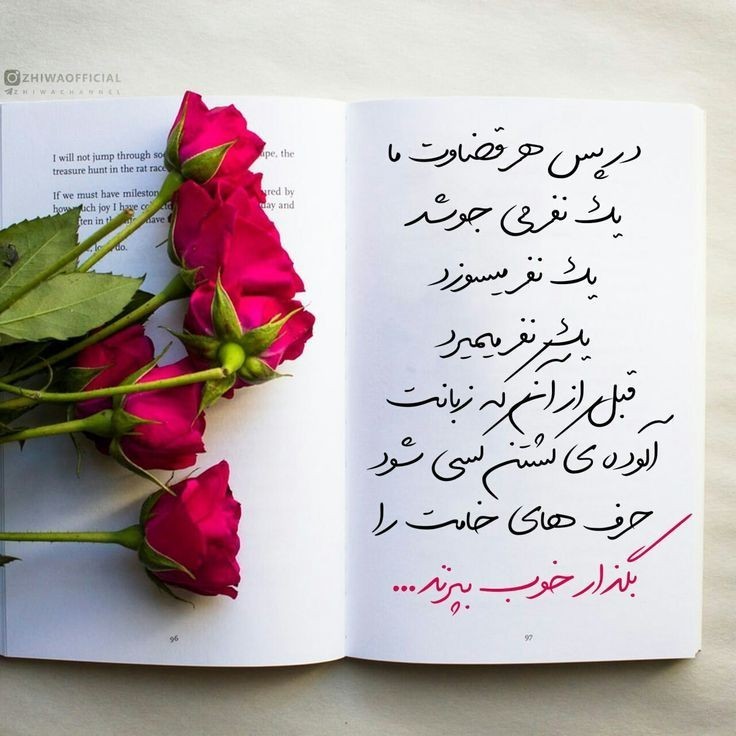 ZHIWAOFFICIAL
ZHIWACHANNEL
I will not jump through ape, the
treasure hunt in the rat race
If we must have mileston ured by
how much joy I have co day and
ten in the have
do.
96
در پس هر قضاوت ما
یک نفر می جوشد
یک نفر میسوزد
یک نفر میمیرد
قبل از آن که زبانت
آلوده ی کشتن کسی شود
حرف های خامت را
بگذار خوب بپزند...
97